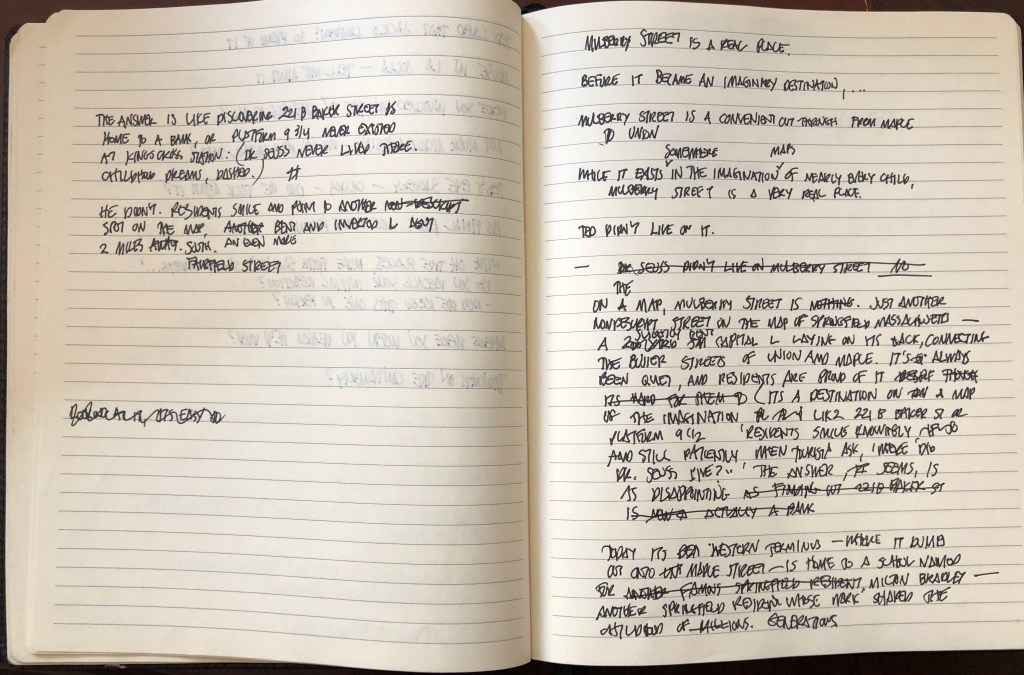 THE ANSWER IS LIKE DISCOVERING 221 B BAKER STREET IS
HOME TO A BANK, OR PLATFORM 9 3/4 NEVER EXISTED
AT KINGS CROSS STATION: (DR SEUSS NEVER LIVED THERE.
CHILDHOOD DREAMS, DASHED.)
HE DIDN'T. RESIDENTS SMILE AND POINT TO ANOTHER NON-DESCRIPT
SPOT ON THE MAP, ANOTHER BENT AND INVERTED L
2 MILES AWAY. SOUTH. AN EVEN MORE
FAIRFIELD STREET
MULBERRY STREET IS A REAL PLACE.
BEFORE IT BECAME AN IMAGINARY DESTINATION, ...
MULBERRY STREET IS A CONVENIENT CUT THROUGH FROM MAPLE
TO UNION
SOMEWHERE MAPS
WHILE IT EXISTS IN THE IMAGINATION OF NEARLY EVERY CHILD,
MULBERRY STREET IS A VERY REAL PLACE.
TED DIDN'T LIVE ON IT.
— DR SEUSS DIDN'T LIVE ON MULBERRY STREET NO
THE
ON A MAP, MULBERRY STREET IS NOTHING. JUST ANOTHER
NONDESCRIPT STREET ON THE MAP OF SPRINGFIELD MASSACHUSETTS —
SLIGHTLY BENT
A CAPITAL L LAYING ON ITS BACK, CONNECTING
THE BUSIER STREETS OF UNION AND MAPLE. IT'S ALWAYS
BEEN QUIET, AND RESIDENTS ARE PROUD OF IT
ITS HARD FOR THEM TO (ITS A DESTINATION ON A MAP
OF THE IMAGINATION LIKE 221 B BAKER ST OR
PLATFORM 9 1/2 RESIDENTS SMILE KNOWINGLY
AND STILL PATIENTLY WHEN TOURISTS ASK, "WHERE DID
DR. SEUSS LIVE?" THE ANSWER, IT SEEMS, IS
AS DISAPPOINTING AS FINDING OUT 221B BAKER ST
IS ACTUALLY A BANK
TODAY ITS WESTERN TERMINUS — WHERE IT DUMPS
OUT ONTO MAPLE STREET — IS HOME TO A SCHOOL NAMED
FOR ANOTHER FAMOUS SPRINGFIELD RESIDENT, MILTON BRADLEY —
ANOTHER SPRINGFIELD RESIDENT WHOSE WORK SHAPED THE
CHILDHOOD OF MILLIONS. GENERATIONS